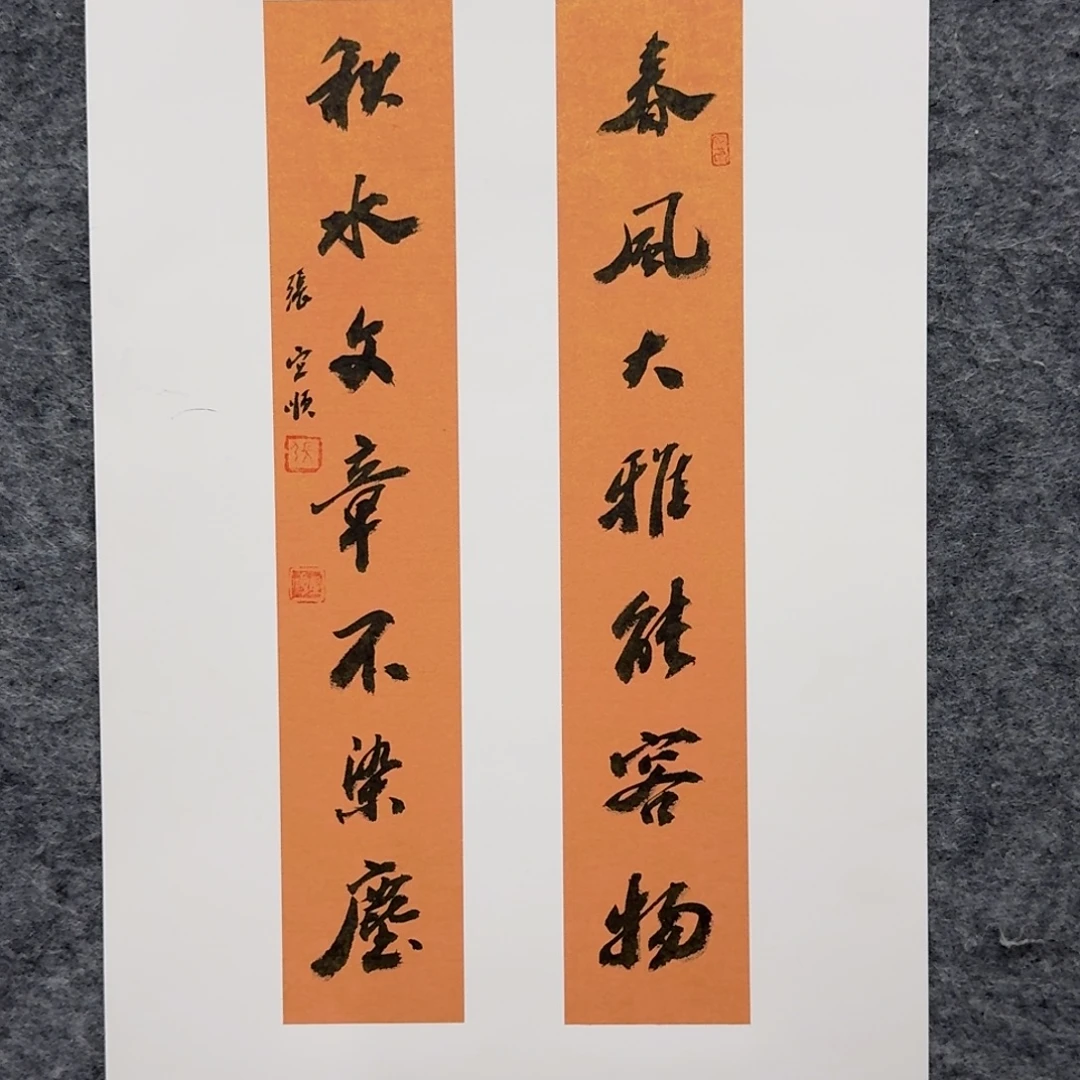 春風大雅能容物
秋水文章不染塵
張宜順